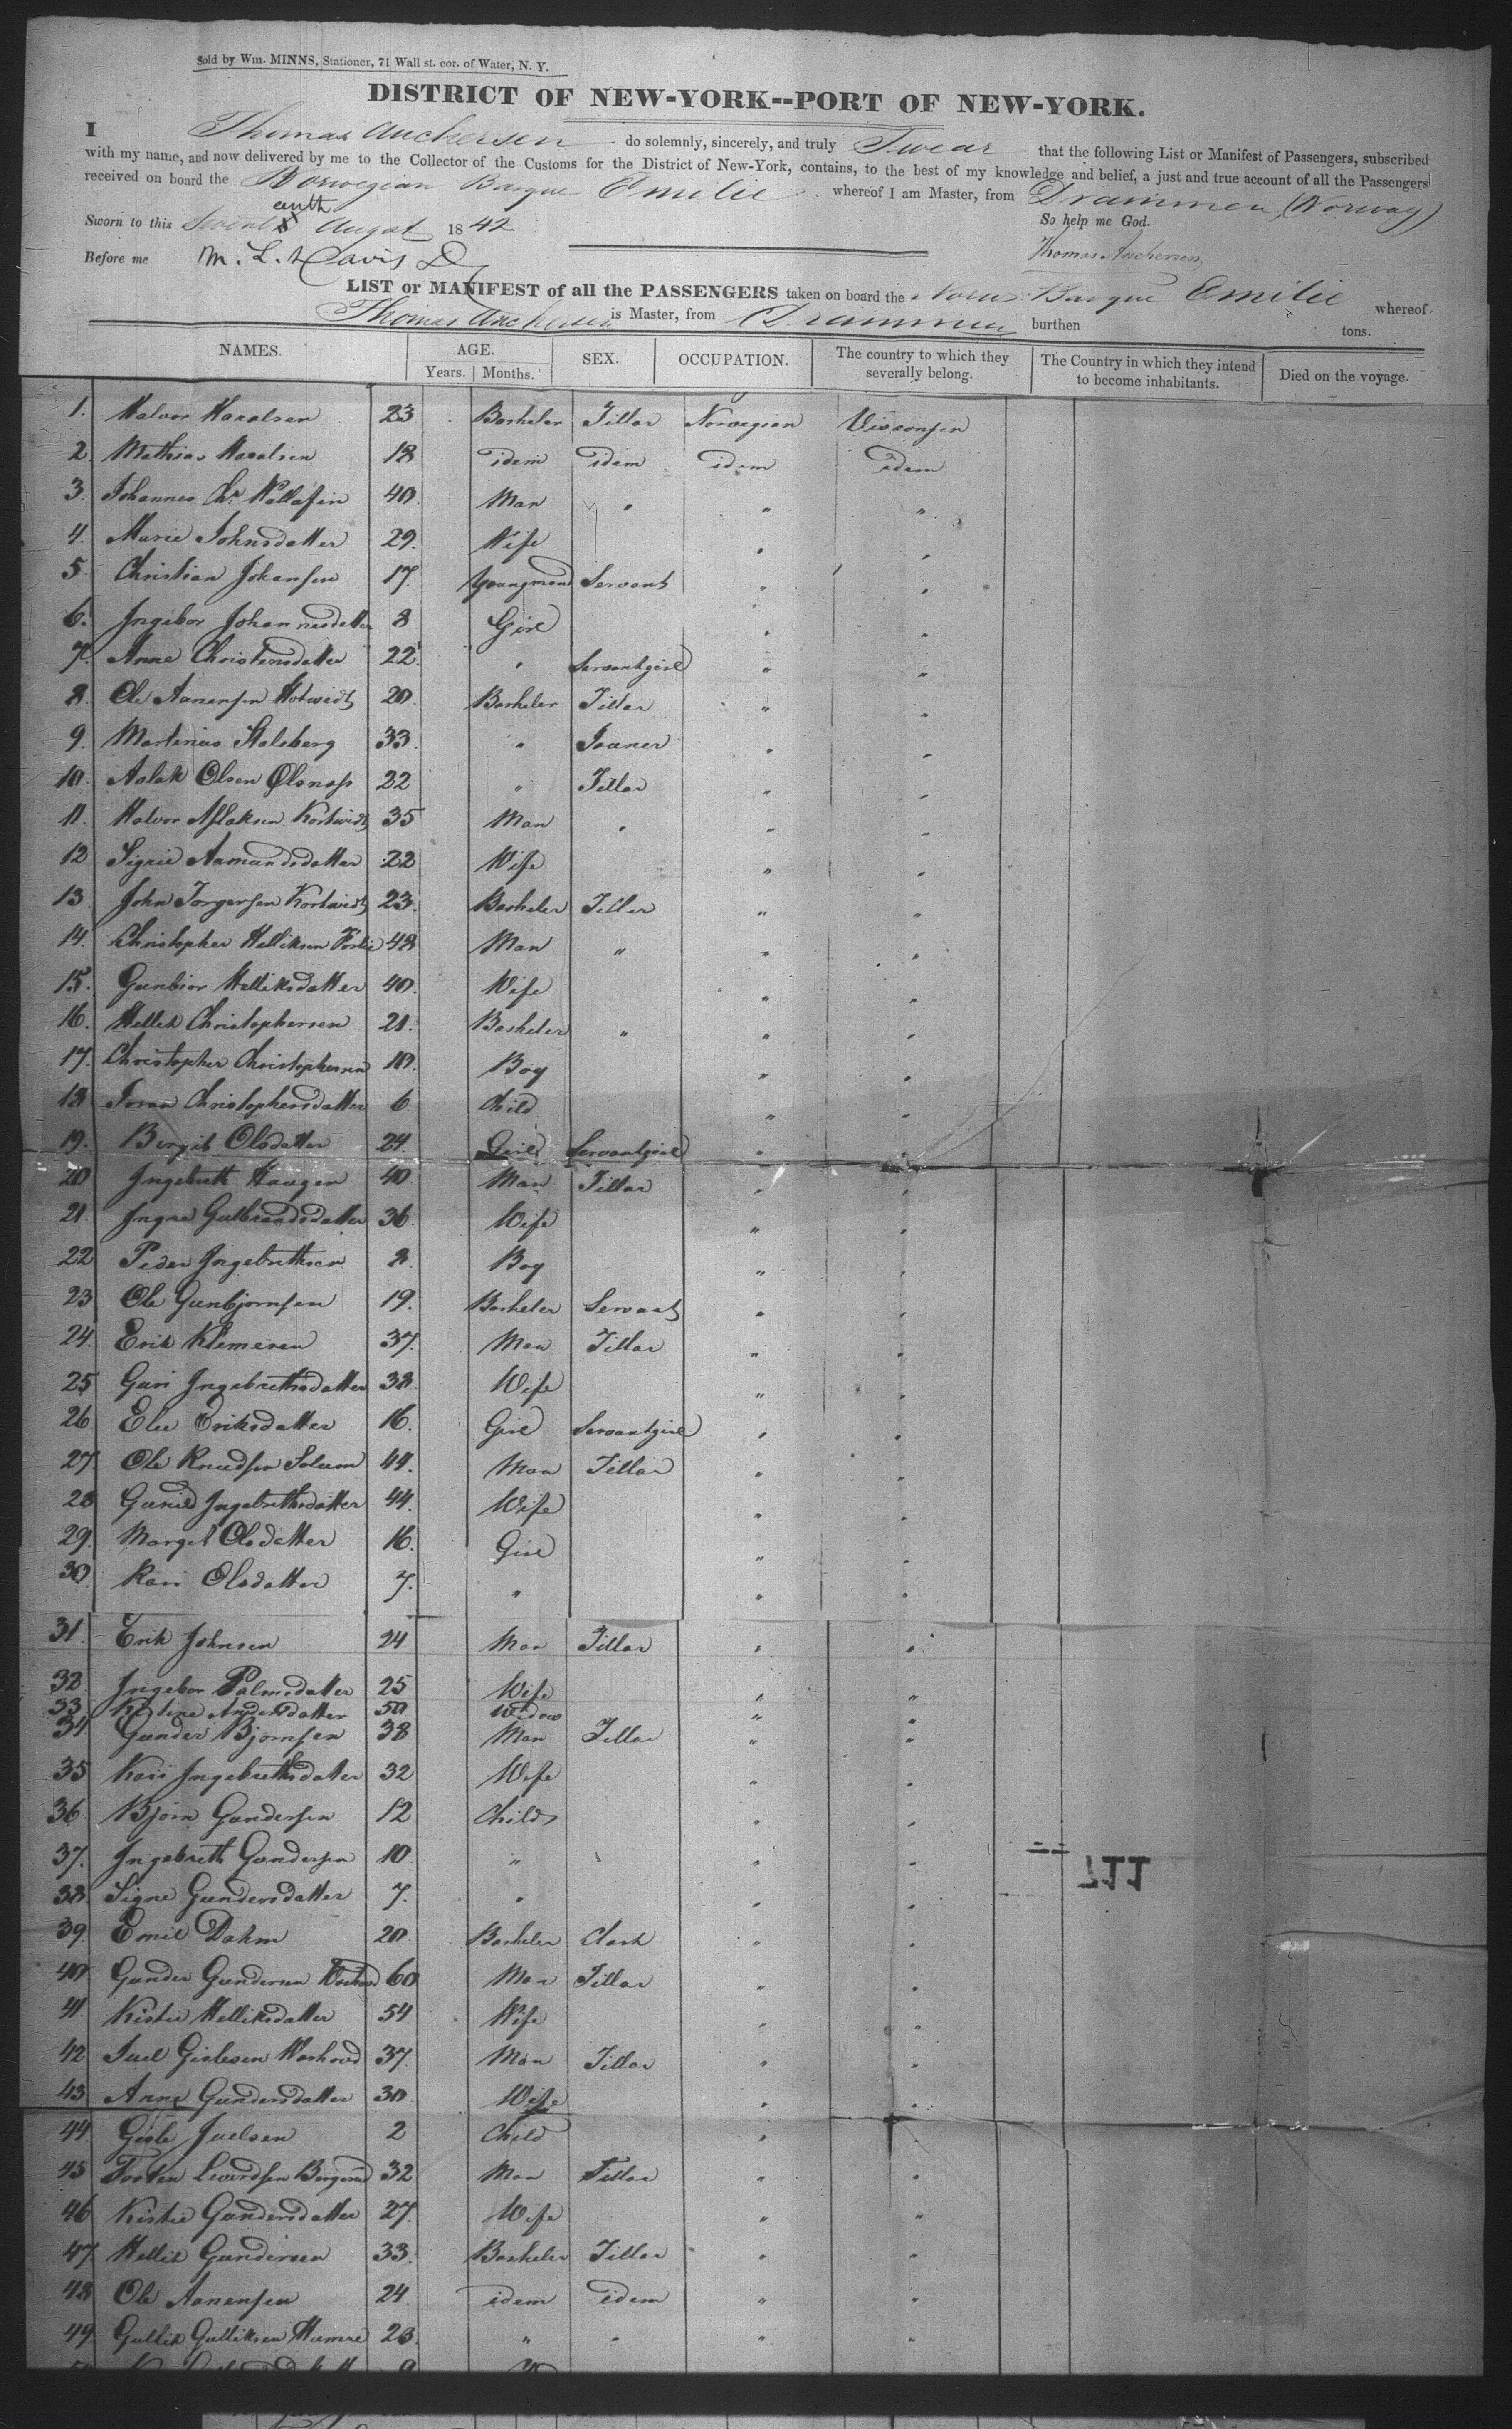 Sold by Wm. MINNS, Stationer, 71 Wall st. cor. of Water, N. Y.
DISTRICT OF NEW-YORK--PORT OF NEW-YORK.
I Thomas Anchersen do solemnly, sincerely, and truly Swear that the following List or Manifest of Passengers, subscribed
with my name, and now delivered by me to the Collector of the Customs for the District of New-York, contains, to the best of my knowledge and belief, a just and true account of all the Passengers
received on board the Norwegian Barque Emilie whereof I am Master, from Drammen (Norway)
So help me God.
Sworn to this August 1842
Thomas Anchersen
Before me M. L. Davis
LIST or MANIFEST of all the PASSENGERS taken on board the Barque Emilie whereof
Thomas Anchersen is Master, from Drammen burthen tons.
NAMES. AGE. Years. Months. SEX. OCCUPATION. The country to which they severally belong. The Country in which they intend to become inhabitants. Died on the voyage.
1. Halvor 23 Bacheler Tillar Norwegian Visconsin
2. Mathias 18 idem idem idem idem
3. Johannes Chr 40. Man " " "
4. Marie Johnsdatter 29. Wife " "
5. Christian Johansen 17. Youngman Servant " "
6. Ingebor Johannesdatter 8 Girl " "
7. Anne Christensdatter 22. " Servantgirl " "
8. Ole Aanensen 20. Bacheler Tillar " "
9. Martinius Stalsberg 33. " " "
10. Aslak Olsen 22 " Tillar " "
11. Halvor Aslaksen 35 Man " " "
12. Sigrie Aamundsdatter 22 Wife " "
13. John Torgersen 23. Bacheler Tiller " "
14. Christopher Helliksen 48 Man " " "
15. Gunbior Helliksdatter 40. Wife " "
16. Hellik Christophersen 21. Bacheler " " "
17. Christopher Christophersen 10. Boy " "
18. Christophersdatter 6 Child " "
19. Bergit Olsdatter 24. Girl Servantgirl " "
20 Ingebreth Haugen 40. Man Tillar " "
21. Ingre Gulbrandsdatter 36. Wife " "
22 Peder Ingebrethsen 8. Boy " "
23 Ole Gunbjornsen 19. Bacheler Servant " "
24. Erik Klemesen 37. Man Tillar " "
25 Guri Ingebrethsdatter 38. Wife " "
26 Eriksdatter 16. Girl Servantgirl " "
27. Ole Knudsen Solum 44. Man Tillar " "
28 Gunild Ingebrethsdatter 44. Wife " "
29. Margit Olsdatter 16. Girl " "
30. Kari Olsdatter 7. " " "
31. Erik Johnsen 24. Man Tillar " "
32. Ingebor Palmsdatter 25 Wife " "
33 Andersdatter 50 Widow " "
34. Gunder Bjornsen 38 Man Tillar " "
35 Kari Ingebrethsdatter 32 Wife " "
36. Bjorn Gundersen 12 Child " "
37. Ingebreth Gundersen 10 " " "
38. Signe Gundersdatter 7. " " "
39. Emil Dahm 20. Bacheler Clark " "
40. Gunder Gundersen 60 Man Tillar " "
41. Kistie Helliksdatter 54. Wife " "
42 Juel Gislesen 37. Man Tillar " "
43. Anne Gundersdatter 30 Wife " "
44 Gisle Juelsen 2 Child "
45 32 Man Tillar " "
46 Kistie Gundersdatter 27. Wife " "
47 Hellik Gundersen 33. Bacheler Tillar " "
48 Ole Aanensen 24. idem idem " "
49 Gullik Gulliksen 26. " " " "
711